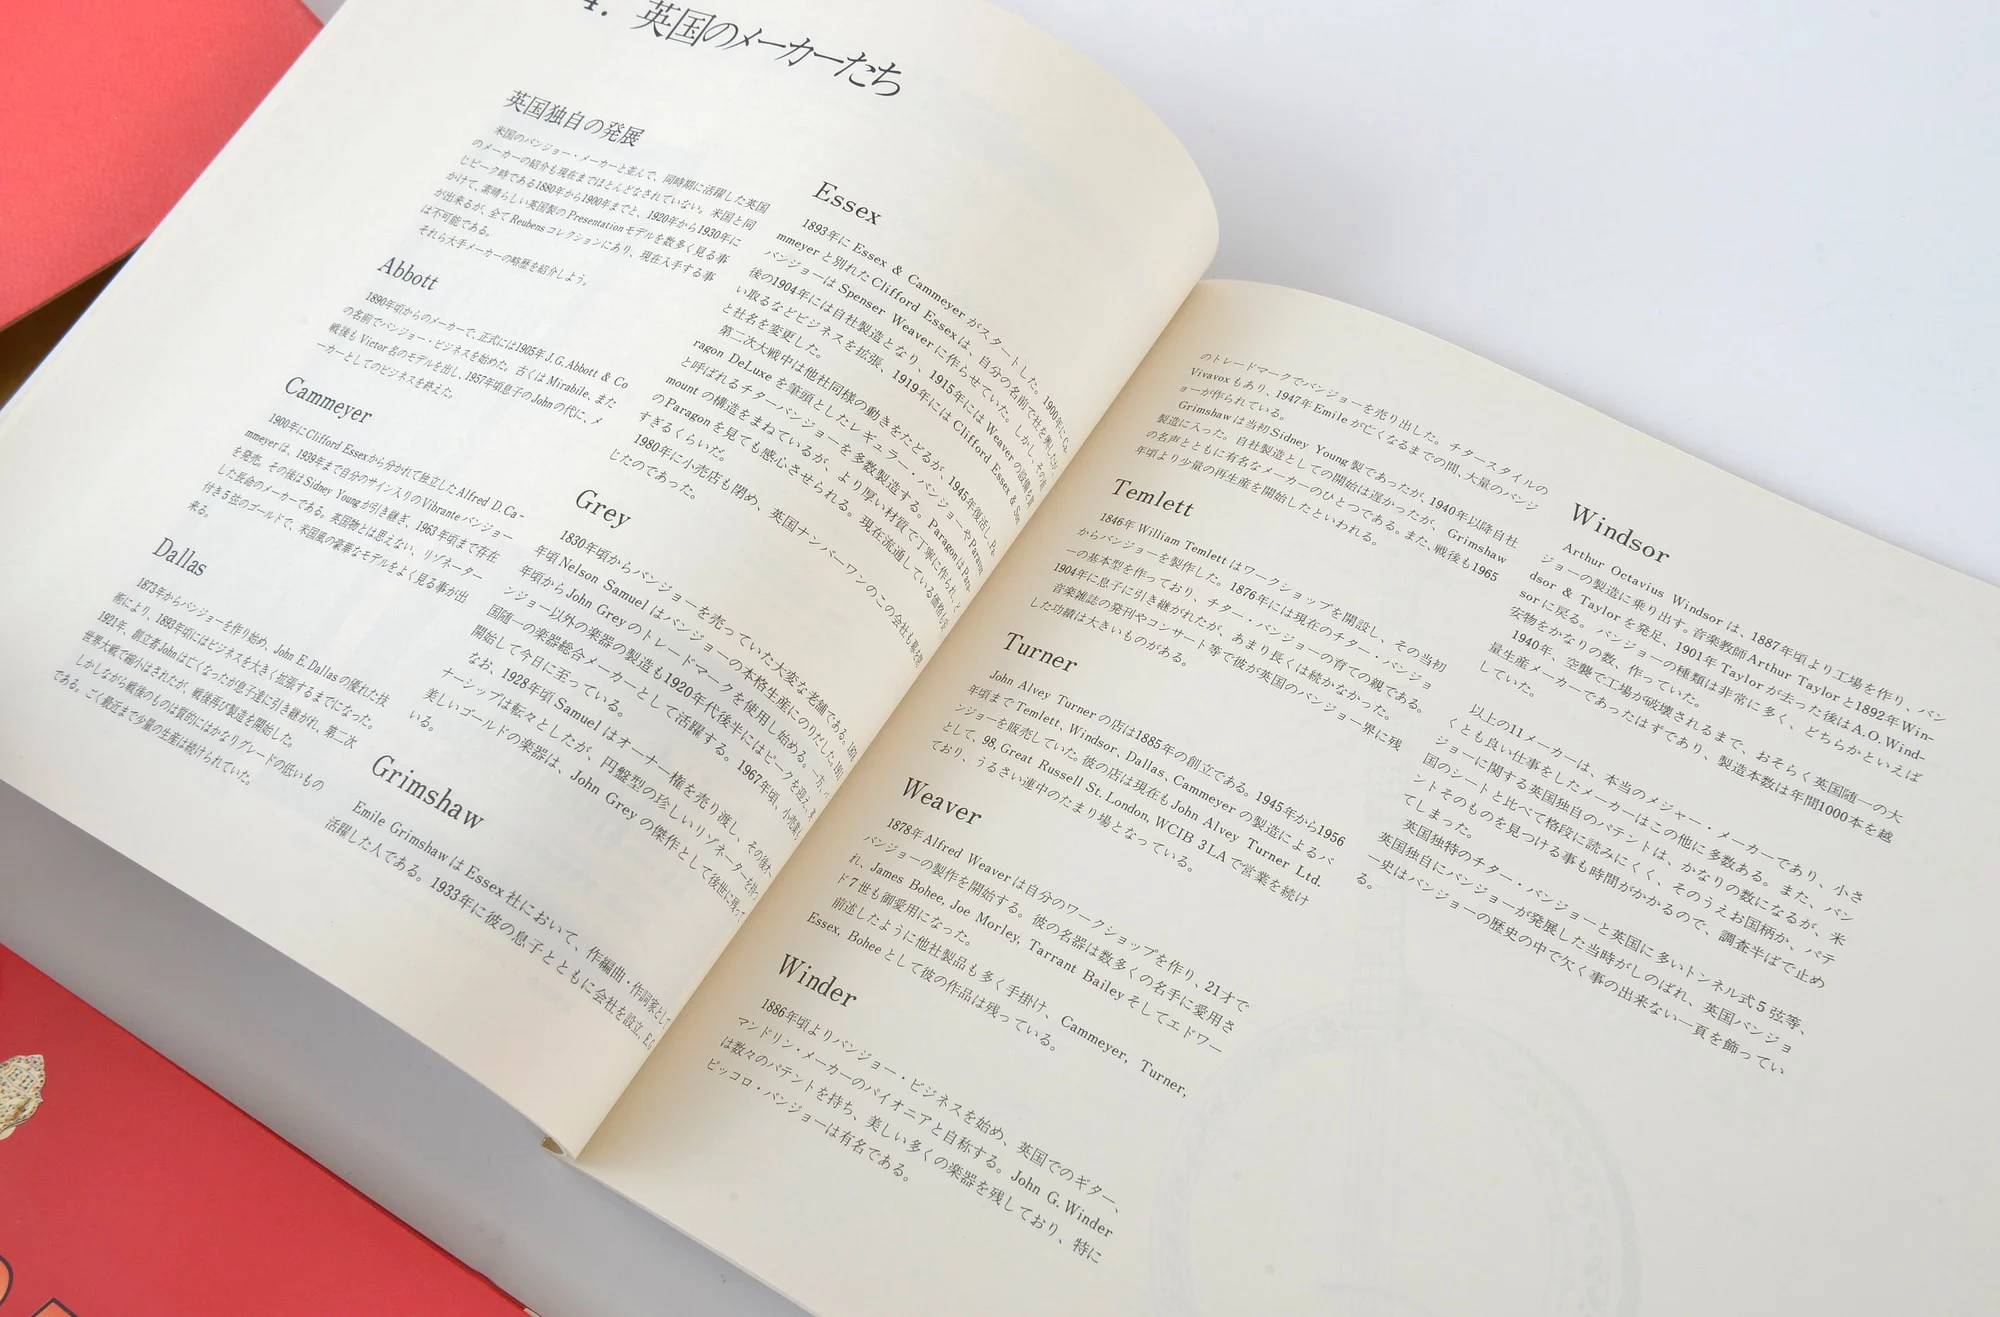 4. 英国のメーカーたち
英国独自の発展
米国のバンジョー・メーカーと並んで、同時期に活躍した英国
のメーカーの紹介も現在までほとんどなされていない。米国と同
じピーク時である1880年から1900年までと、1920年から1930年に
かけて、素晴らしい英国製のPresentationモデルを数多く見る事
が出来るが、全てReubensコレクションにあり、現在入手する事
は不可能である。
それら大手メーカーの略歴を紹介しよう。
Abbott
1890年頃からのメーカーで、正式には1905年 J.G. Abbott & Co
の名前でバンジョー・ビジネスを始めた。古くは Mirabile, また
戦後も Victor 名のモデルを出し、1957年頃息子の Johnの代に、メ
ーカーとしてのビジネスを終えた。
Cammeyer
1900年にClifford Essexから分かれて独立したAlfred D. Ca-
mmeyerは、1939年まで自分のサイン入りのVibranteバンジョー
を発売。その後はSidney Youngが引き継ぎ、1963年頃まで存在
した長命のメーカーである。英国物とは思えない、リゾネーター
付き5弦のゴールドで、米国風の豪華なモデルをよく見る事が出
来る。
Dallas
1873年からバンジョーを作り始め、John E. Dallasの優れた技
術により、1893年頃にはビジネスを大きく拡張するまでになった。
1921年、創立者Johnは亡くなったが息子達に引き継がれ、第二次
世界大戦で縮小はされたが、戦後再び製造を開始した。
しかしながら戦後のものは質的にはかなりグレードの低いもの
である。ごく最近まで少量の生産は続けられていた。
Essex
1893年に Essex & Cammeyer がスタートした。1900年に Ca-
mmeyer と別れた Clifford Essex は、自分の名前で社を興したが、
バンジョーは Spenser Weaver に作らせていた。しかし、その
後の1904年には自社製造となり、1915年には Weaver の設備を買
い取るなどビジネスを拡張、1919年には Clifford Essex & Son
と社名を変更した。
第二次大戦中は他社同様の動きをたどるが、1945年復活し、Pa-
ragon DeLuxe を筆頭としたレギュラー・バンジョーや Paragon
と呼ばれるチターバンジョーを多数製造する。Paragonは Para-
mount の構造をまねているが、より厚い材質で丁寧に作られ、
のParagonを見ても感心させられる。現在流通している価格も安
すぎるくらいだ。
1980年に小売店も閉め、英国ナンバーワンのこの会社も幕を閉
じたのであった。
Grey
1830年頃からバンジョーを売っていた大変な老舗である。
年頃Nelson Samuel はバンジョーの本格生産にのりだした。
年頃から John Grey のトレードマークを使用し始める。一方、バ
ンジョー以外の楽器の製造も1920年代後半にはピークを迎え、
国随一の楽器総合メーカーとして活躍する。1967年頃、小売業
開始して今日に至っている。
なお、1928年頃 Samuel はオーナー権を売り渡し、その後
ナーシップは転々としたが、円盤型の珍しいリゾネーターを持
美しいゴールドの楽器は、John Grey の傑作として後世に残って
いる。
Grimshaw
Emile Grimshaw は Essex 社において、作編曲・作詞家として
活躍した人である。1933年に彼の息子とともに会社を設立、E.G
のトレードマークでバンジョーを売り出した。チタースタイルの
Vivavoxもあり、1947年Emileが亡くなるまでの間、大量のバンジ
ョーが作られている。
Grimshaw は当初 Sidney Young 製であったが、1940年以降自社
製造に入った。自社製造としての開始は遅かったが、Grimshaw
の名声とともに有名なメーカーのひとつである。また、戦後も1965
年頃より少量の再生産を開始したといわれる。
Temlett
1846年 William Temlett はワークショップを開設し、その当初
からバンジョーを製作した。1876年には現在のチター・バンジョ
ーの基本型を作っており、チター・バンジョーの育ての親である。
1904年に息子に引き継がれたが、あまり長くは続かなかった。
音楽雑誌の発刊やコンサート等で彼が英国のバンジョー界に残
した功績は大きいものがある。
Turner
John Alvey Turner の店は1885年の創立である。1945年から1956
年頃まで Temlett, Windsor, Dallas, Cammeyer の製造によるバ
ンジョーを販売していた。彼の店は現在も John Alvey Turner Ltd.
として、98, Great Russell St. London, WC1B 3LA で営業を続け
ており、うるさい連中のたまり場となっている。
Weaver
1878年 Alfred Weaver は自分のワークショップを作り、21才で
バンジョーの製作を開始する。彼の名器は数多くの名手に愛用さ
れ、James Bohee, Joe Morley, Tarrant Bailey そしてエドワー
ド7世も御愛用になった。
前述したように他社製品も多く手掛け、Cammeyer, Turner,
Essex, Bohee として彼の作品は残っている。
Winder
1886年頃よりバンジョー・ビジネスを始め、英国でのギター、
マンドリン・メーカーのパイオニアと自称する。John G. Winder
は数々のパテントを持ち、美しい多くの楽器を残しており、特に
ピッコロ・バンジョーは有名である。
Windsor
Arthur Octavius Windsor は、1887年頃より工場を作り、バン
ジョーの製造に乗り出す。音楽教師 Arthur Taylor と1892年 Win-
dsor & Taylor を発足、1901年 Taylor が去った後は A.O. Wind-
sor に戻る。バンジョーの種類は非常に多く、どちらかといえば
安物をかなりの数、作っていた。
1940年、空襲で工場が破壊されるまで、おそらく英国随一の大
量生産メーカーであったはずであり、製造本数は年間1000本を越
していた。
以上の11メーカーは、本当のメジャー・メーカーであり、小さ
くとも良い仕事をしたメーカーはこの他に多数ある。また、バン
ジョーに関する英国独自のパテントは、かなりの数になるが、米
国のシートと比べて格段に読みにくく、そのうえお国柄か、パテ
ントそのものを見つける事も時間がかかるので、調査半ばで止め
てしまった。
英国独特のチター・バンジョーと英国に多いトンネル式5弦等、
英国独自にバンジョーが発展した当時がしのばれ、英国バンジョ
ー史はバンジョーの歴史の中で欠く事の出来ない一頁を飾ってい
る。